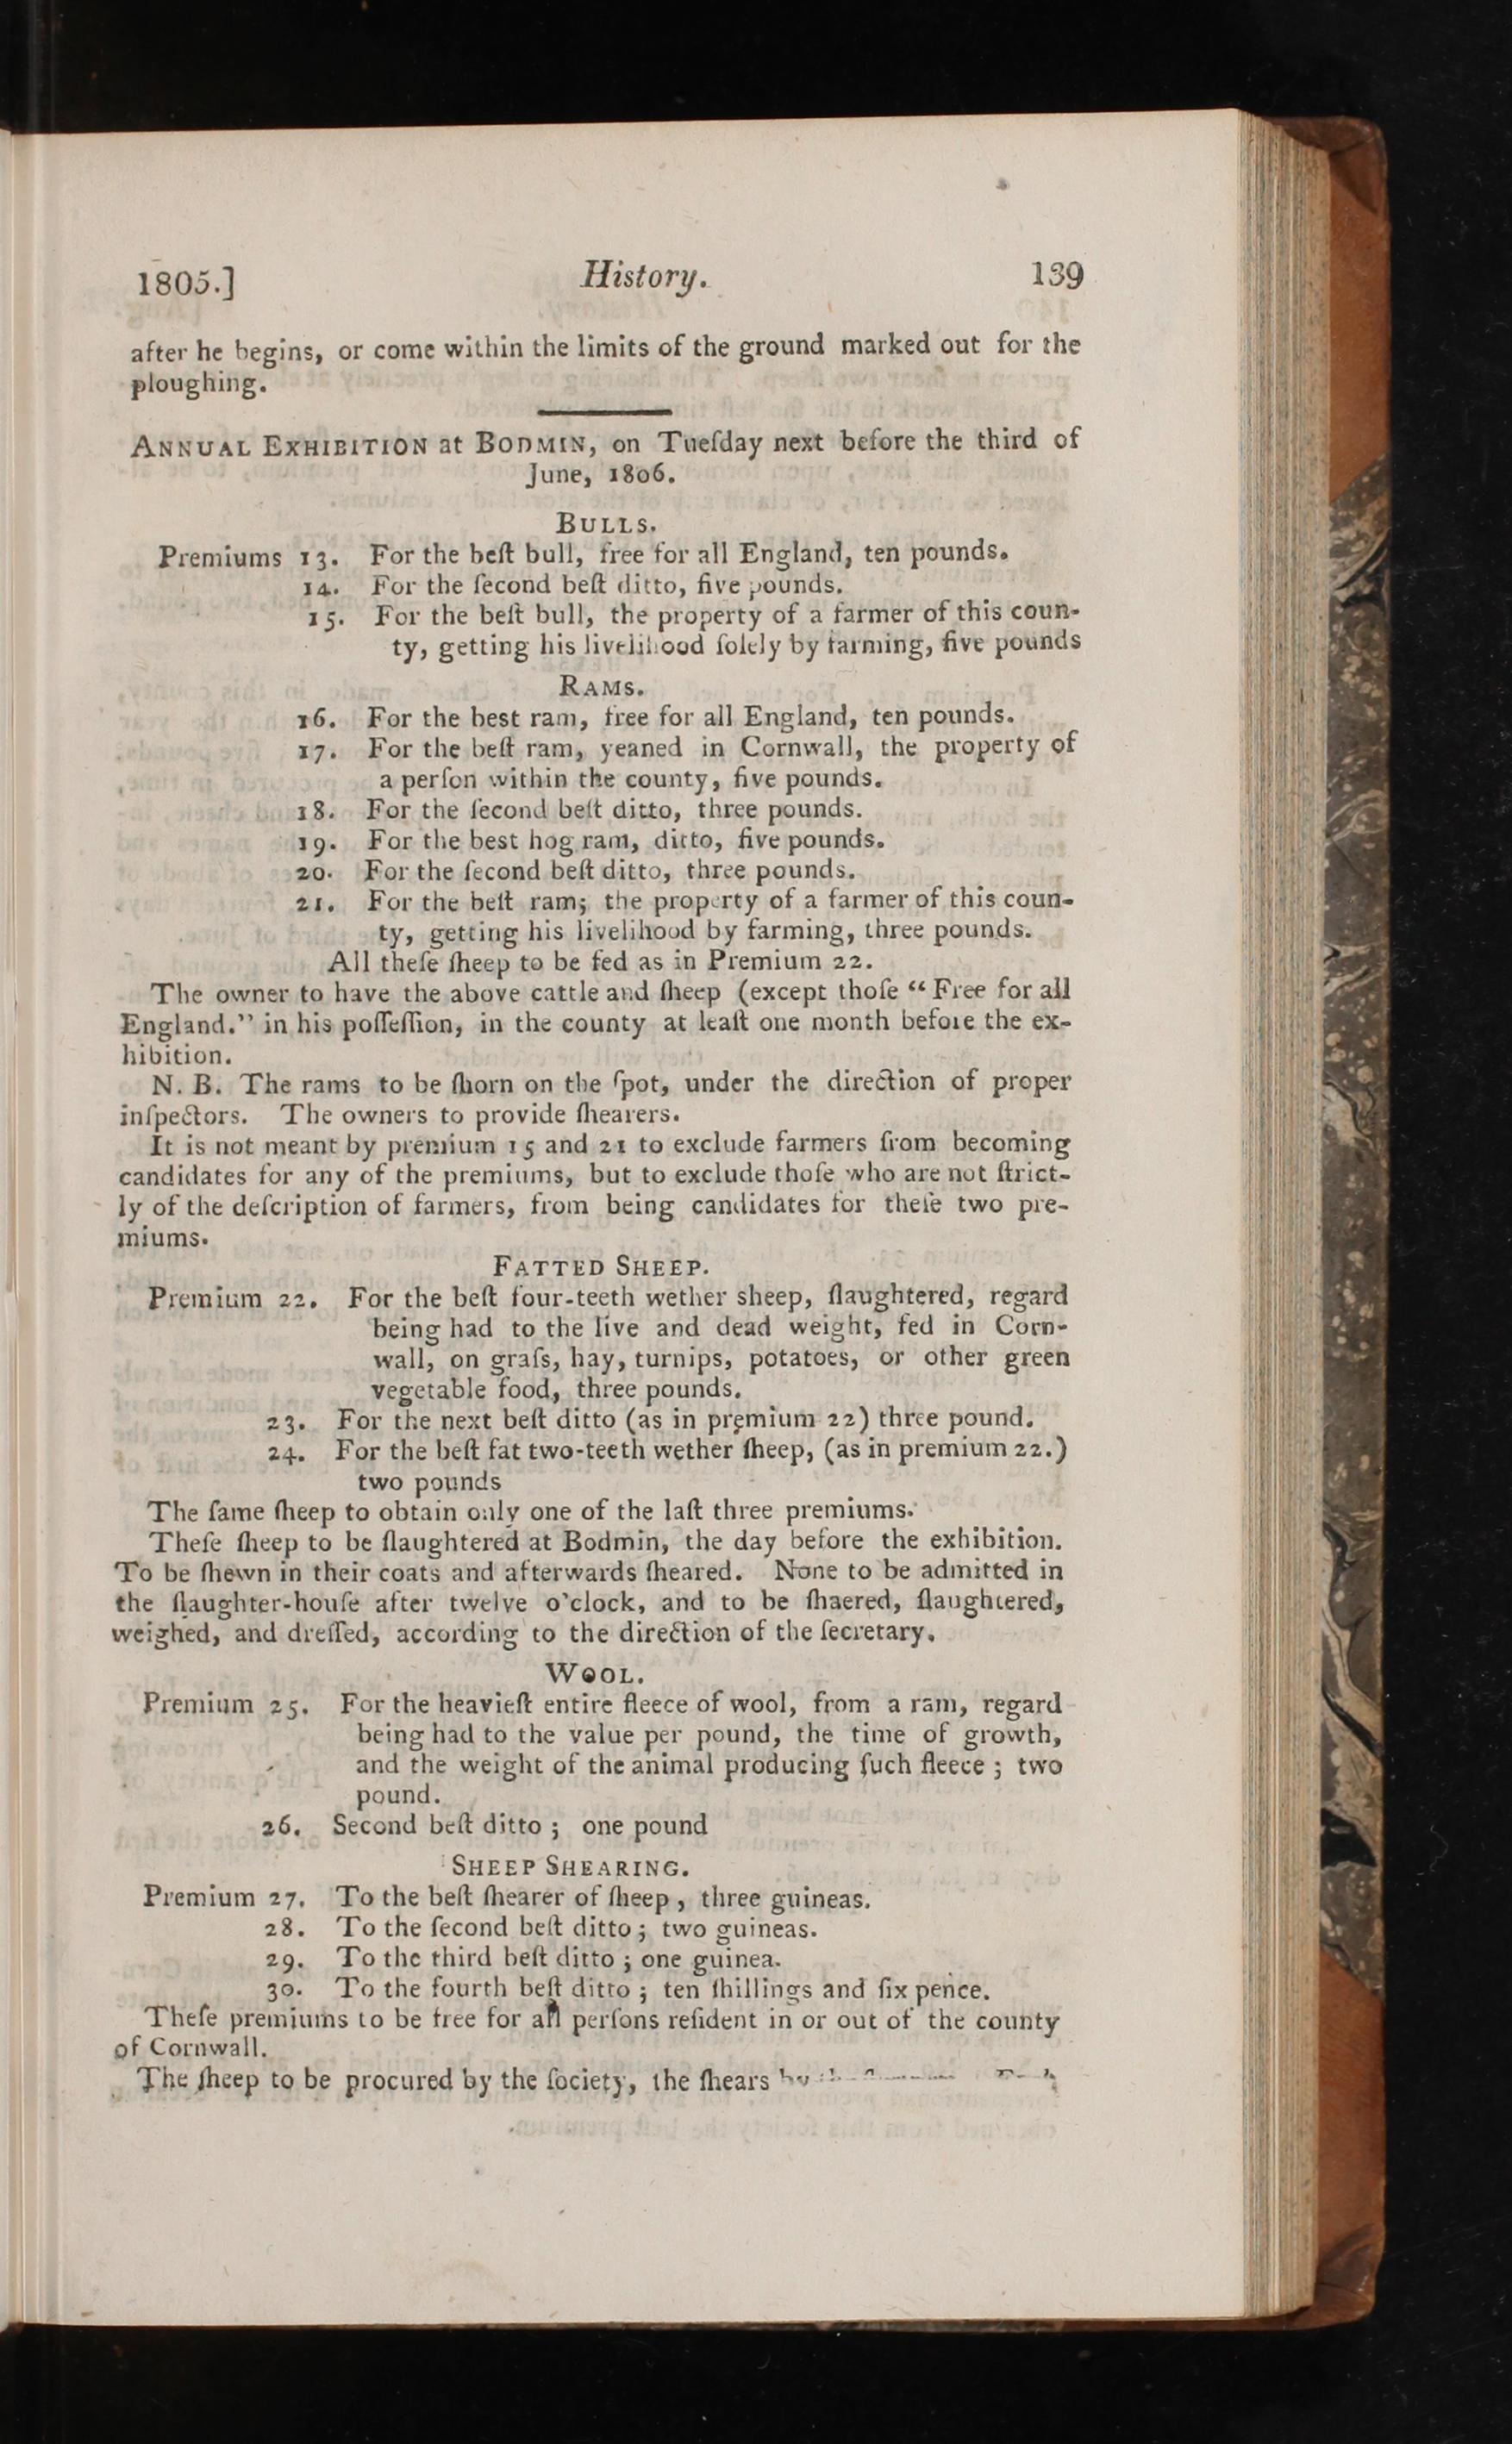 1805.] History. 139
after he begins, or come within the limits of the ground marked out for the
ploughing.
ANNUAL EXHIBITION at BODMIN, on Tueſday next before the third of
June, 1806.
BULLS.
Premiums 13. For the beſt bull, free for all England, ten pounds.
14. For the ſecond beſt ditto, five pounds.
15. For the beſt bull, the property of a farmer of this coun-
ty, getting his livelihood ſolely by farming, five pounds
RAMS.
16. For the best ram, free for all England, ten pounds.
17. For the beſt ram, yeaned in Cornwall, the property of
a perſon within the county, five pounds.
18. For the ſecond beſt ditto, three pounds.
19. For the best hog ram, ditto, five pounds.
20. For the ſecond beſt ditto, three pounds.
21. For the beſt ram; the property of a farmer of this coun-
ty, getting his livelihood by farming, three pounds.
All theſe ſheep to be fed as in Premium 22.
The owner to have the above cattle and ſheep (except thoſe “ Free for all
England.” in his poſſeſſion, in the county at leaſt one month before the ex-
hibition.
N. B. The rams to be ſhorn on the ſpot, under the direction of proper
inſpectors. The owners to provide ſhearers.
It is not meant by premium 15 and 21 to exclude farmers from becoming
candidates for any of the premiums, but to exclude thoſe who are not ſtrict-
ly of the deſcription of farmers, from being candidates for theſe two pre-
miums.
FATTED SHEEP.
Premium 22. For the beſt four-teeth wether sheep, ſlaughtered, regard
being had to the live and dead weight, fed in Corn-
wall, on graſs, hay, turnips, potatoes, or other green
vegetable food, three pounds.
23. For the next beſt ditto (as in premium 22) three pound.
24. For the beſt fat two-teeth wether ſheep, (as in premium 22.)
two pounds
The ſame ſheep to obtain only one of the laſt three premiums.
Theſe ſheep to be ſlaughtered at Bodmin, the day before the exhibition.
To be ſhewn in their coats and afterwards ſheared. None to be admitted in
the ſlaughter-houſe after twelve o'clock, and to be ſhaered, ſlaughtered,
weighed, and dreſſed, according to the direction of the ſecretary.
WOOL.
Premium 25. For the heavieſt entire fleece of wool, from a ram, regard
being had to the value per pound, the time of growth,
and the weight of the animal producing ſuch fleece ; two
pound.
26. Second beſt ditto ; one pound
SHEEP SHEARING.
Premium 27. To the beſt ſhearer of ſheep , three guineas.
28. To the ſecond beſt ditto ; two guineas.
29. To the third beſt ditto ; one guinea.
30. To the fourth beſt ditto ; ten ſhillings and ſix pence.
Theſe premiums to be free for all perſons reſident in or out of the county
of Cornwall.
The ſheep to be procured by the ſociety, the ſhears by